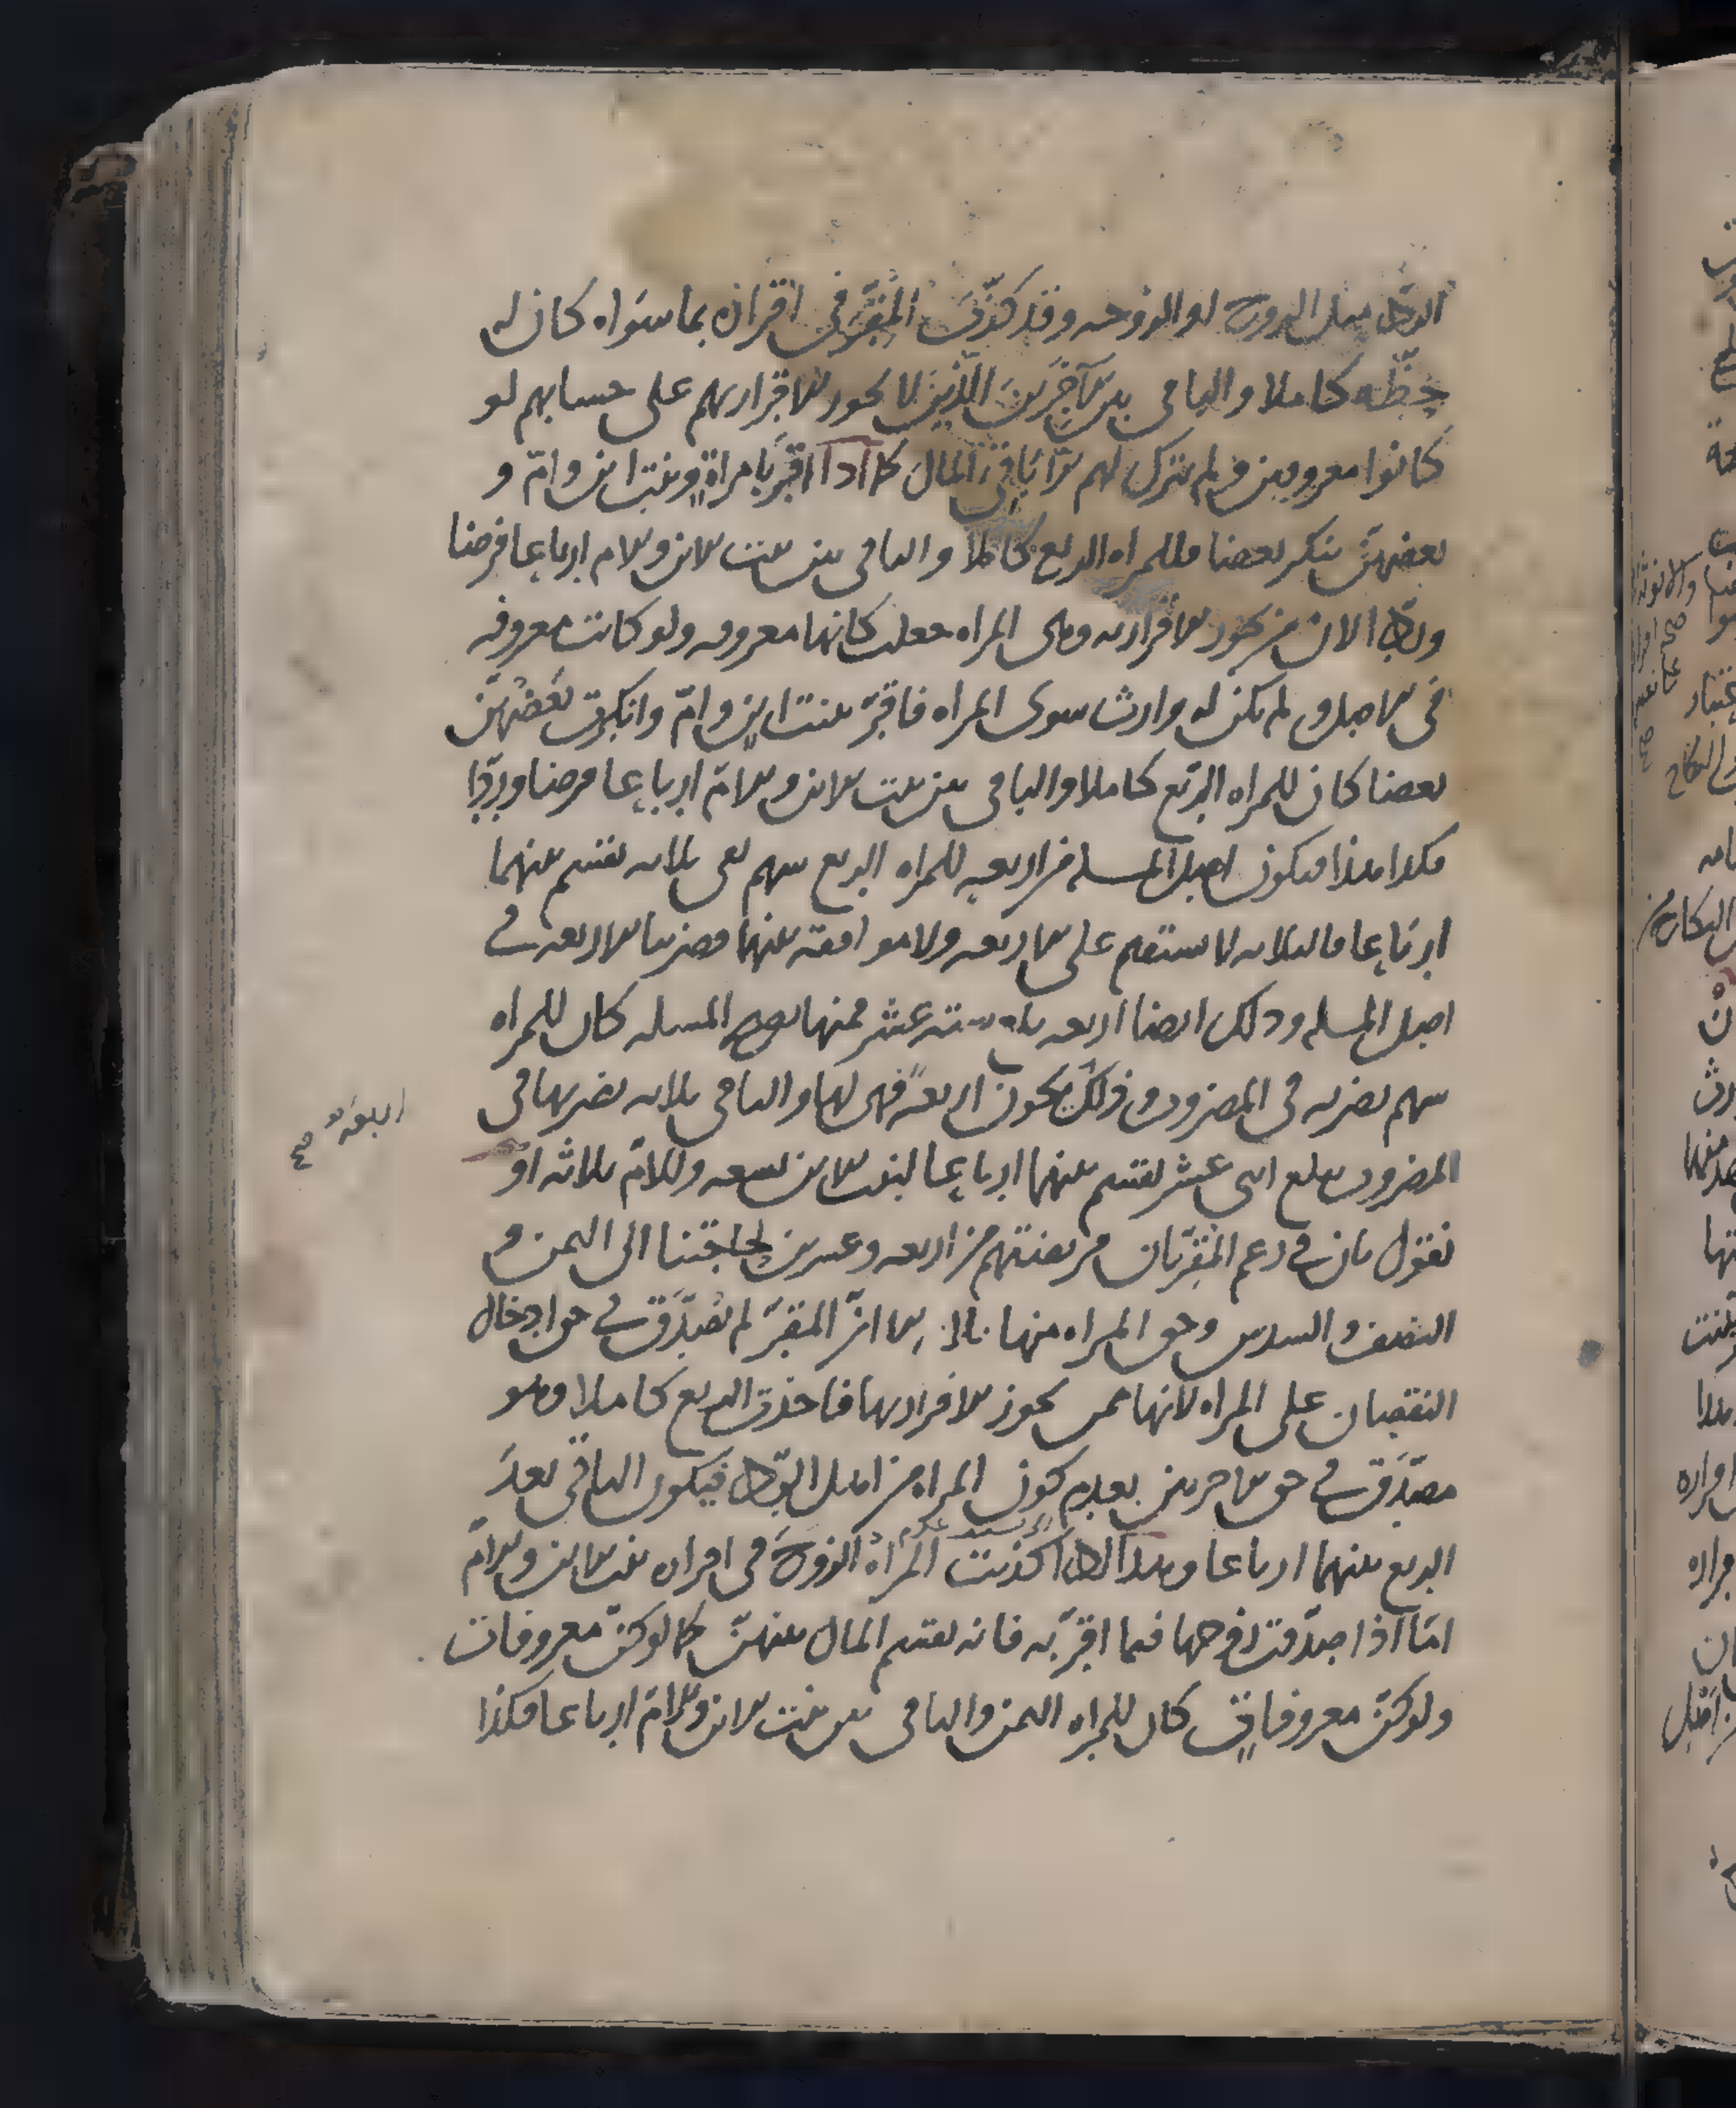 الرد مثل الزوج او الزوجه وقد كذّب المقر في اقراره بما سواه كان له
حظه كاملا والباقي بين الآخرين الذين لا يجوز الاقرار بهم على حسابهم لو
كانوا معروفين ولم يترك لهم باقي المال كما اذا اقرّ بامراةٍ وبنت ابن وامّ و
بعضهنّ ينكر بعضا فللمراه الربع كاملا والباقي بين بنت الابن والام ارباعا فرضا
وردّا الان من يجوز الاقرار به وهى المراه جعلت كانها معروفه ولو كانت معروفه
في الاصل ولم يكن له وارث سوى المراه فاقرّ ببنت ابن وامّ وانكرت بعضهنّ
بعضا كان للمراه الربع كاملا والباقي بين بنت الابن والامّ ارباعا فرضا وردّا
فكذا هذا فيكون اصل المسله من اربعه للمراه الربع سهم بقى ثلاثه تقسم بينهما
ارباعا فالثلاثه لا ستقيم على الاربعه ولا موافقه بينهما فضربنا الاربعه في
اصل المسله وذلك ايضا اربعه بلغ سته عشر فمنها تصح المسله كان للمراه
سهم نضربه في المضروب وذلك يكون اربعه فهى لها والباقي ثلاثه نضربها في
المضروب يبلغ اثنى عشر تقسم بينهما ارباعا لبنت الابن تسعه وللامّ ثلاثه او
نقول بان في زعم المقرّ بان فريضتهم من اربعه وعشرين لحاجتنا الى الثمن و
النصف والسدس وحق المراه منها الا انّ المقرّ لم يصدّق في حق ادخال
النقصان على المراه لانها ممن يجوز الاقرار بها فاخذت الربع كاملا وهو
مصدّق في حق الاخرين بعدم كون المراه من اهل الردّ فيكون الباقي بعد
الربع بينهما ارباعا وهذا اذا كذبت المراه الزوج في اقراره ببنت الابن والامّ
امّا اذا صدّقت زوجها فيما اقرّ به فانه يقسم المال بينهنّ كما لو كنّ معروفات
ولو كنّ معروفاتٍ كان للمراه الثمن والباقي بين بنت الابن والامّ ارباعا فكذا